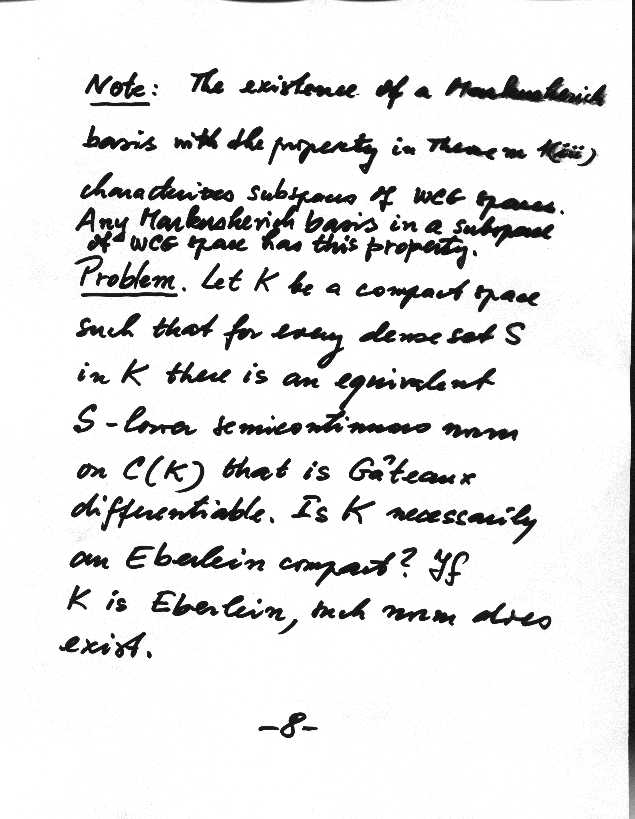 Note: The existence of a Markusherich
basis with the property in Theorem 1(iii)
characterizes subspaces of WCG spaces.
Any Markusherich basis in a subspace
of WCG space has this property.
Problem. Let K be a compact space
such that for every dense set S
in K there is an equivalent
S-lower semicontinuous norm
on C(K) that is Gâteaux
differentiable. Is K necessarily
an Eberlein compact? If
K is Eberlein, such norm does
exist.
-8-